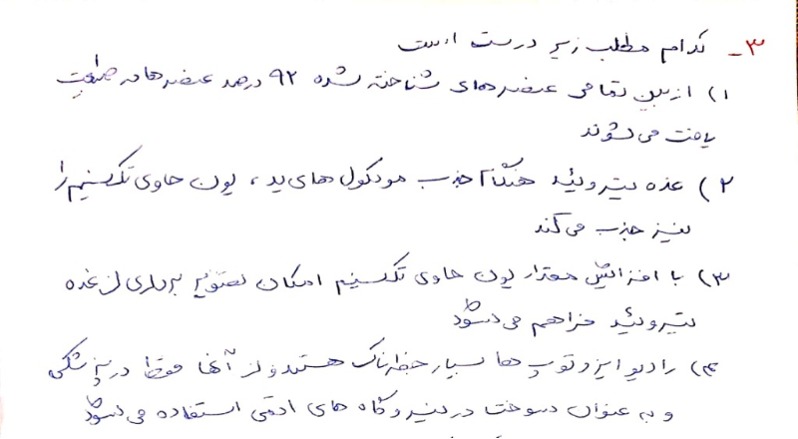 ۳- کدام مطلب زیر درست است
۱) از بین تمامی عنصرهای شناخته شده ۹۲ درصد عنصرها در طبیعت
یافت می‌شوند
۲) غده تیروئید هنگام جذب مولکول های ید، یون حاوی تکنسیم را
نیز جذب می‌کند
۳) با افزایش مقدار یون حاوی تکنسیم امکان تصویر برداری از غده
تیروئید فراهم می‌شود
۴) رادیو ایزوتوپ ها بسیار خطرناک هستند و از آنها فقط در پزشکی
و به عنوان سوخت در نیروگاه های اتمی استفاده می‌شود